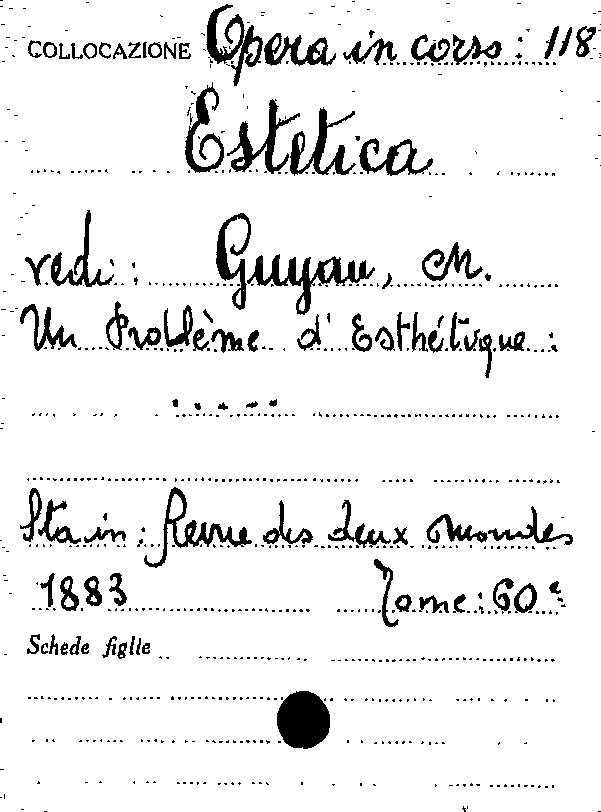 COLLOCAZIONE Opera in corso: 118
Estetica
vedi: Guyau, M.
Un Problème d'Esthétique:
.....
Sta in: Revue des deux mondes
1883 Tome: 60e
Schede figlie